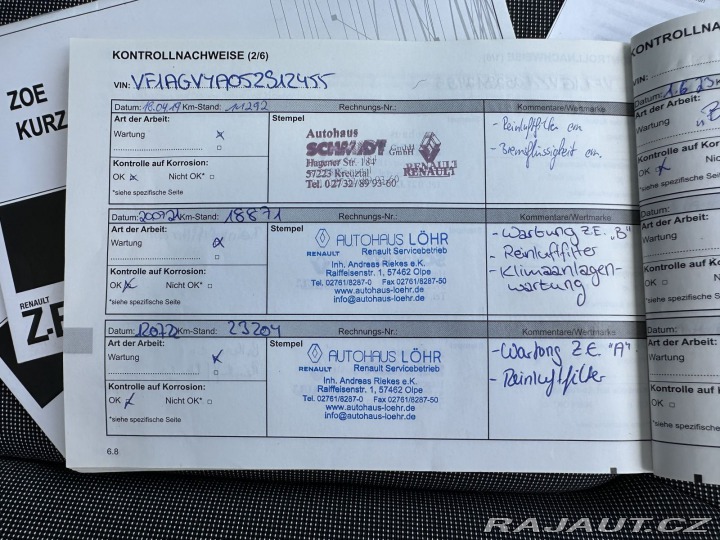 ZOE
KURZ
RENAULT
Z.E
KONTROLLNACHWEISE (2/6)
VIN: VF1AGVYA052812455
Datum: 18.04.19 Km-Stand: 11292 Rechnungs-Nr.: Kommentare/Wertmarke
Art der Arbeit: Stempel
Wartung x
Kontrolle auf Korrosion:
OK x Nicht OK* □
*siehe spezifische Seite
Autohaus
SCHMIDT GmbH
GmbH
Hagener Str. 184
57223 Kreuztal
Tel. 0 27 32/89 93-60
RENAULT
RENAULT
- Reinluftfilter ern.
- Bremsflüssigkeit ern.
Datum: 200721 Km-Stand: 18871 Rechnungs-Nr.: Kommentare/Wertmarke
Art der Arbeit: Stempel
Wartung x
Kontrolle auf Korrosion:
OK x Nicht OK* □
*siehe spezifische Seite
AUTOHAUS LÖHR
RENAULT Renault Servicebetrieb
Inh. Andreas Riekes e.K.
Raiffeisenstr. 1, 57462 Olpe
Tel. 02761/8287-0 Fax 02761/8287-50
www.autohaus-loehr.de
info@autohaus-loehr.de
- Wartung Z.E. „B"
- Reinluftfilter
- Klimaanlagen-
wartung
Datum: 120722 Km-Stand: 23204 Rechnungs-Nr.: Kommentare/Wertmarke
Art der Arbeit: Stempel
Wartung x
Kontrolle auf Korrosion:
OK x Nicht OK* □
*siehe spezifische Seite
AUTOHAUS LÖHR
RENAULT Renault Servicebetrieb
Inh. Andreas Riekes e.K.
Raiffeisenstr. 1, 57462 Olpe
Tel. 02761/8287-0 Fax 02761/8287-50
www.autohaus-loehr.de
info@autohaus-loehr.de
- Wartung Z.E. "A"
- Reinluftfilter
6.8
KONTROLLNA
VIN:
Datum: 1.6.23 K
Art der Arbeit:
Wartung
Kontrolle auf Ko
OK x N
*siehe spezifische
Datum:
Art der Arbeit:
Wartung
Kontrolle auf Ko
OK □
*siehe spezifische
Datum:
Art der Arbeit
Wartung
Kontrolle auf
OK □
*siehe spezifisch
RAJAUT.CZ